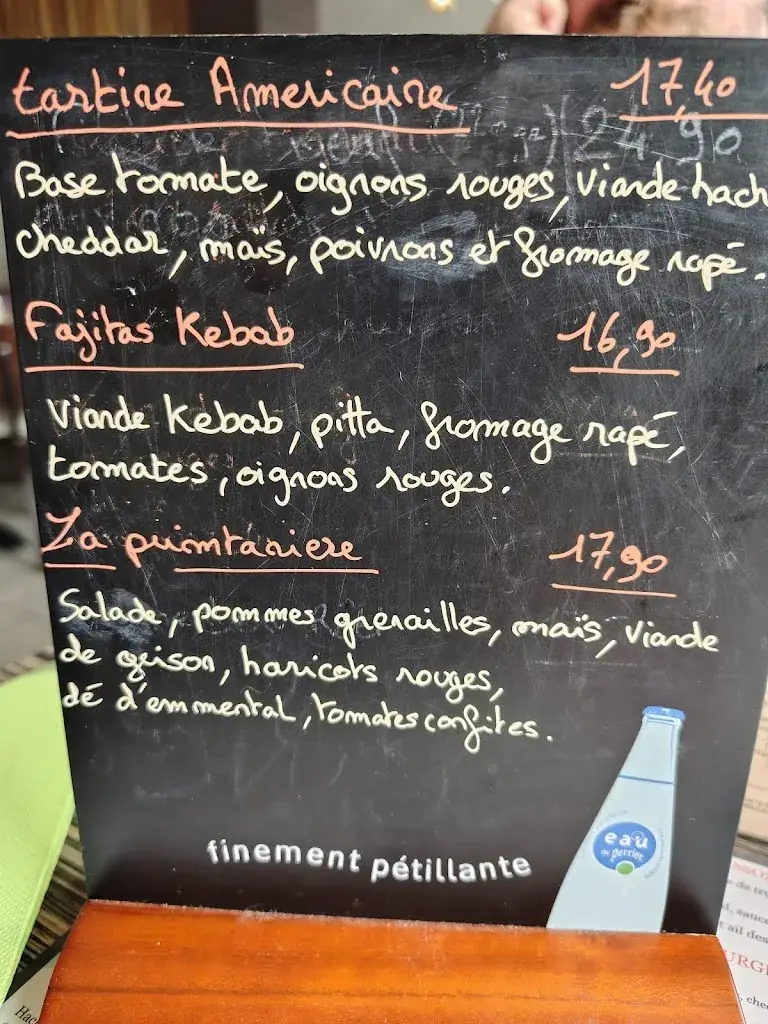 tartine Americaine 17,40
Base tomate, oignons rouges, viande hach
cheddar, maïs, poivrons et fromage rapé.
Fajitas Kebab 16,90
Viande Kebab, pitta, fromage rapé,
tomates, oignons rouges.
La puimtaniere 17,90
Salade, pommes grenailles, maïs, viande
de grison, haricots rouges,
dé d'emmental, tomates confites.
finement pétillante
eau
de perrier
, sauce
t ail des
URGE
, che
Hac